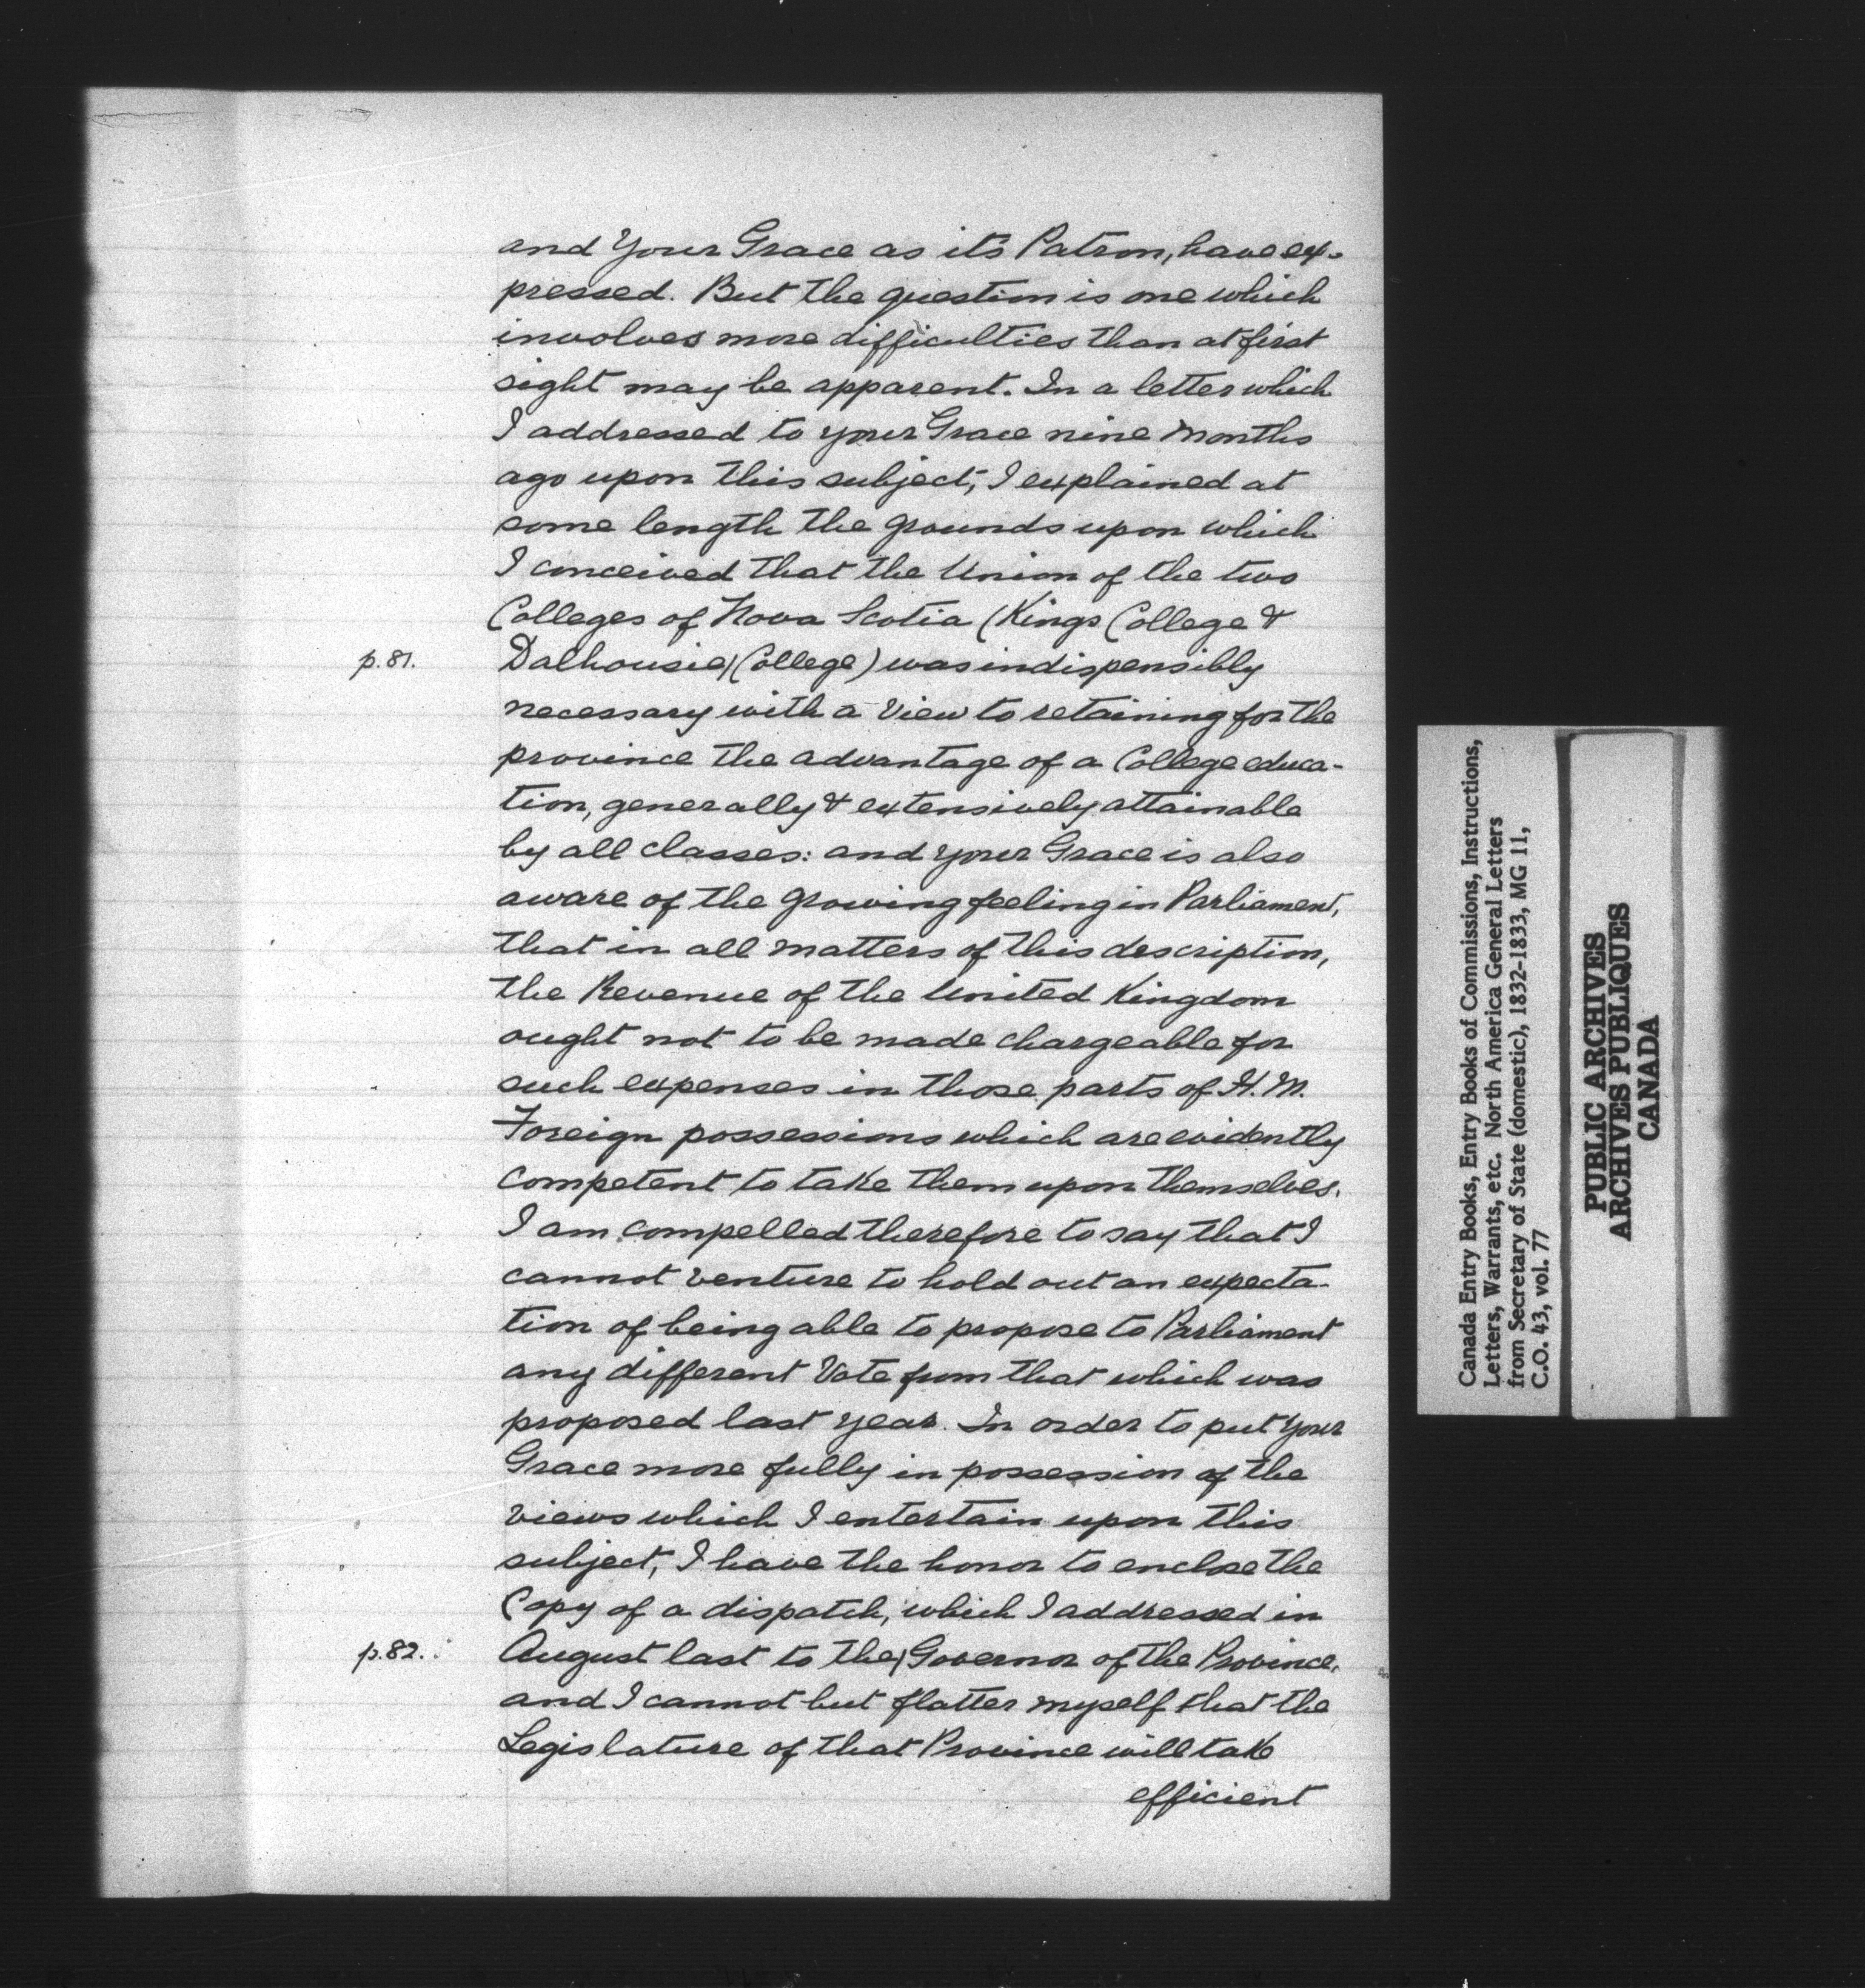 and Your Grace as it's Patron, have ex-
pressed. But the question is one which
involves more difficulties than at first
sight may be apparent. In a letter which
I addressed to your Grace nine months
ago upon this subject, I explained at
some length the grounds upon which
I conceived that the Union of the two
Colleges of Nova Scotia (Kings College &
p.81. Dalhousie/College) was indispensibly
necessary with a view to retaining for the
province the advantage of a College educa-
tion, generally & extensively attainable
by all classes: and your Grace is also
aware of the growing feeling in Parliament,
that in all matters of this description,
the Revenue of the United Kingdom
ought not to be made chargeable for
such expenses in those parts of H. M.
Foreign possessions which are evidently
competent to take them upon themselves.
I am compelled therefore to say that I
cannot venture to hold out an expecta-
tion of being able to propose to Parliament
any different Vote from that which was
proposed last year. In order to put Your
Grace more fully in possession of the
views which I entertain upon this
subject, I have the honor to enclose the
Copy of a dispatch, which I addressed in
p.82. August last to the/Governor of the Province,
and I cannot but flatter myself that the
Legislature of that Province will take
efficient
Canada Entry Books, Entry Books of Commissions, Instructions,
Letters, Warrants, etc. North America General Letters
from Secretary of State (domestic), 1832-1833, MG 11,
C.O. 43, vol. 77
PUBLIC ARCHIVES
ARCHIVES PUBLIQUES
CANADA